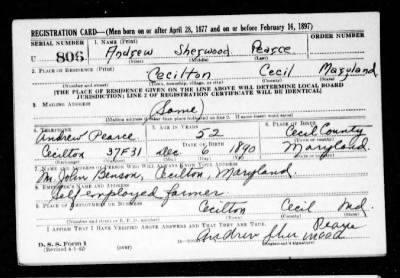 REGISTRATION CARD—(Men born on or after April 28, 1877 and on or before February 16, 1897)
SERIAL NUMBER 1. NAME (Print) ORDER NUMBER
U 806 Andrew Sherwood Pearce
(First) (Middle) (Last)
2. PLACE OF RESIDENCE (Print)
Cecilton Cecil Maryland
(Number and street) (Town, township, village, or city) (County) (State)
[THE PLACE OF RESIDENCE GIVEN ON THE LINE ABOVE WILL DETERMINE LOCAL BOARD
JURISDICTION; LINE 2 OF REGISTRATION CERTIFICATE WILL BE IDENTICAL]
3. MAILING ADDRESS
(Same)
[Mailing address if other than place indicated on line 2. If same insert word same]
4. TELEPHONE 5. AGE IN YEARS 6. PLACE OF BIRTH
Andrew Pearce 52 Cecil County
DATE OF BIRTH
Cecilton 37F31 Dec 6 1890 Maryland
7. NAME AND ADDRESS OF PERSON WHO WILL ALWAYS KNOW YOUR ADDRESS
Mr. John Benson, Cecilton, Maryland.
8. EMPLOYER'S NAME AND ADDRESS
Self employed farmer
9. PLACE OF EMPLOYMENT OR BUSINESS
Cecilton Cecil Md.
(Number and street or R. F. D. number) (Town) (County) (State)
I AFFIRM THAT I HAVE VERIFIED ABOVE ANSWERS AND THAT THEY ARE TRUE.
Andrew Sherwood Pearce
D. S. S. Form 1
(Revised 4-1-42) (over) (Registrant's signature)